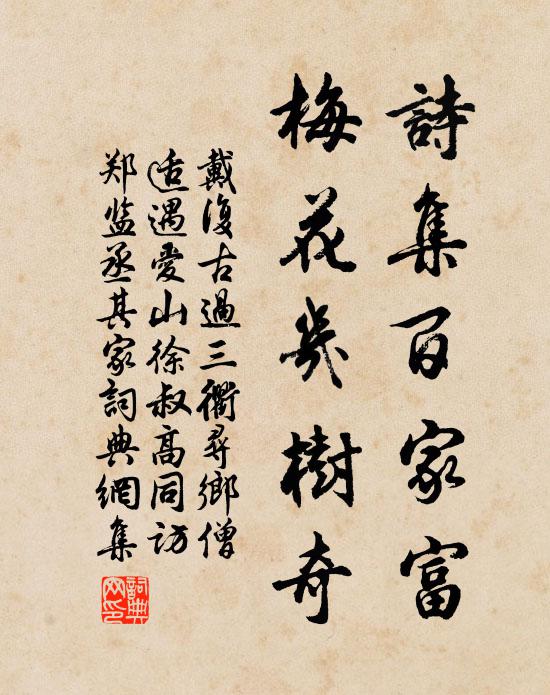 詩集百家富
梅花幾樹奇
戴復古過三衢尋鄉僧
适遇愛山徐叔高同訪
郑监丞其家詞典網集
詞典
网印